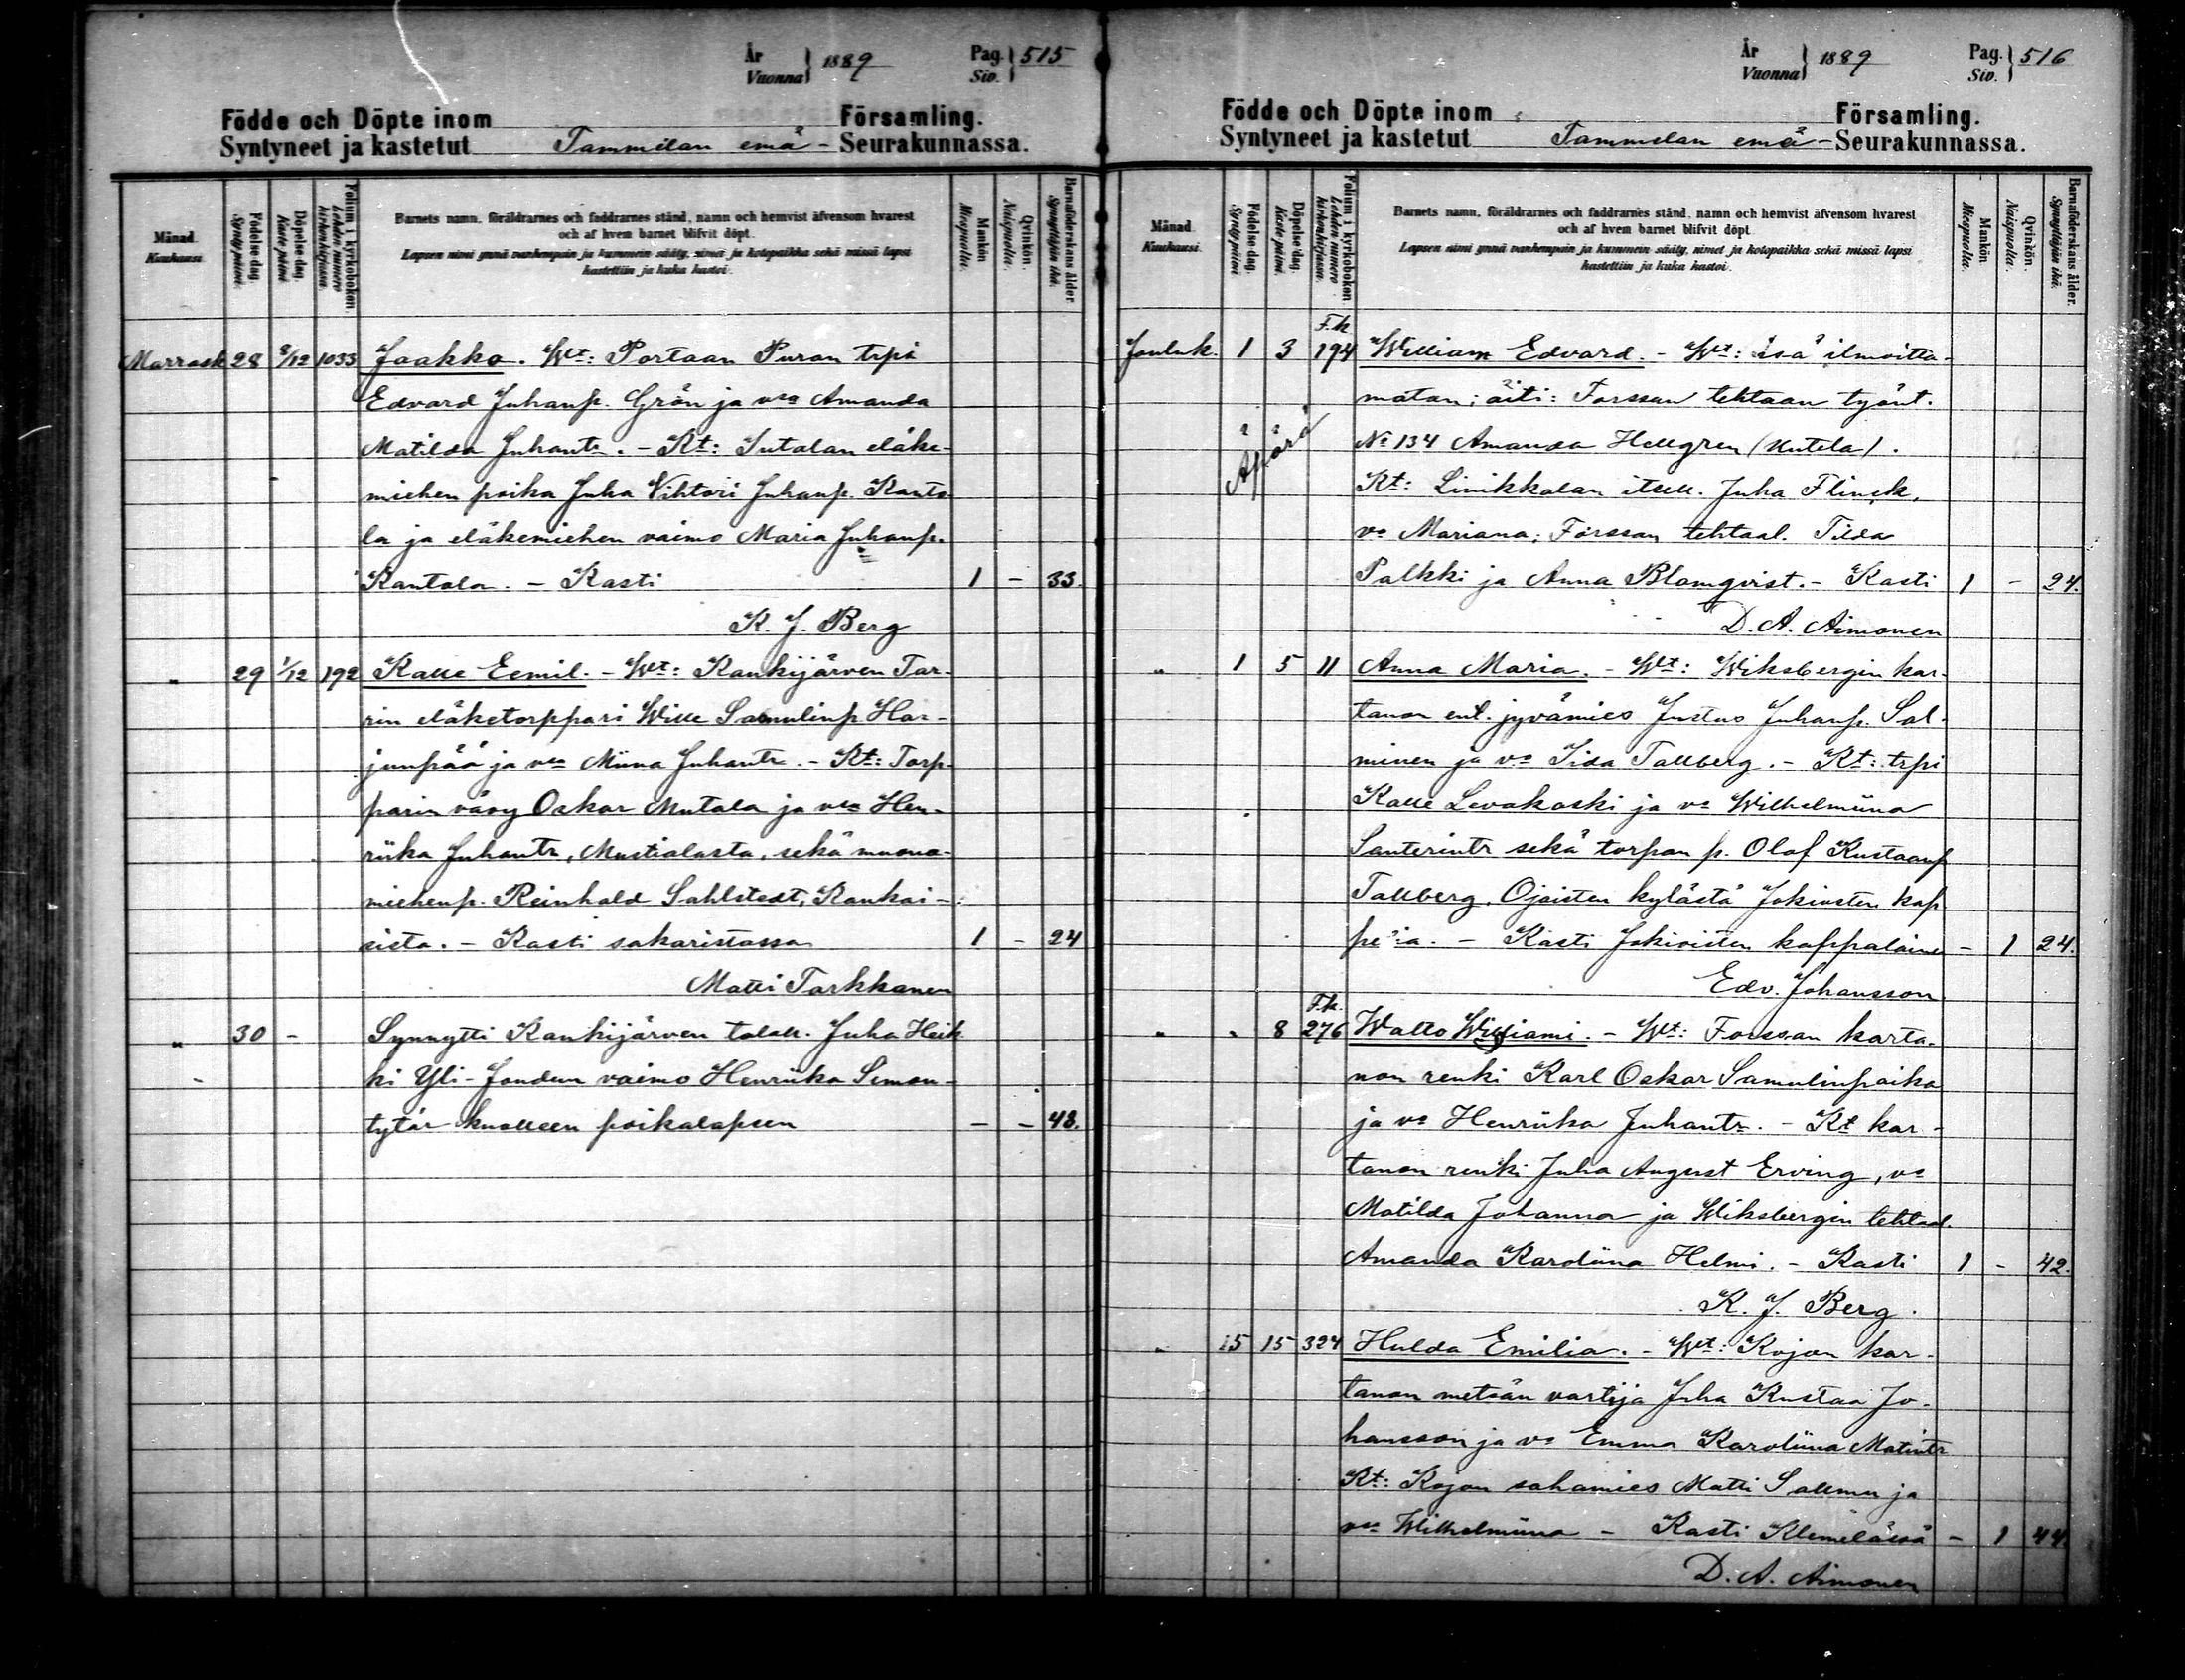 År
Vuonna } 1889
Pag.
Siv. } 515
Födde och Döpte inom Församling.
Syntyneet ja kastetut Tammelan emä- Seurakunnassa.
Månad.
Kuukausi.
Födelse dag.
Synty päivä.
Döpelse dag.
Kaste päivä.
Folium i kyrkoboken.
Lehden numero kirkonkirjassa.
Barnets namn, föräldrarnes och faddrarnes stånd, namn och hemvist äfvensom hvarest
och af hvem barnet blifvit döpt.
Lapsen nimi ynnä vanhempain ja kummein sääty, nimet ja kotopaikka sekä missä lapsi
kastettiin ja kuka kastoi.
Mankön
Miespuolia.
Qvinkön.
Naispuolia.
Barnaföderskans ålder.
Synnyttäjän ikä.
Marrask 28 8/12 1033 Jaakko. Wt: Portaan Puran trpi
Edvard Juhanp. Grön ja vmo Amanda
Matilda Juhantr. - Kt: Sutalan eläke-
miehen poika Juha Vihtori Juhanp. Kanta
la ja eläkemiehen vaimo Maria Juhanp.
Kantola. - Kasti 1 - 33.
K. J. Berg
" 29 1/12 192 Kalle Eemil. - Wt: Kaukijärven Tar-
rin eläketorppari Wille Samulinp Har-
junpää ja vmo Miina Juhantr. - Kt: Torp-
parin vävy Oskar Mutala ja vmo Hen-
riika Juhantr, Mustialasta, sekä muona-
miehenp. Reinhold Sahlstedt, Kankai-
sista. - Kasti sakaristossa 1 - 24
Matti Tarkkanen
" 30 - Synnytti Kaukijärven talall. Juha Heik
ki Yli-Jaudun vaimo Henriika Simon-
tytär kuolleen poikalapsen - - 43.
År
Vuonna } 1889
Pag.
Siv. } 516
Födde och Döpte inom Församling.
Syntyneet ja kastetut Tammelan emä- Seurakunnassa.
Månad.
Kuukausi.
Födelse dag.
Synty päivä.
Döpelse dag.
Kaste päivä.
Folium i kyrkoboken.
Lehden numero kirkonkirjassa.
Barnets namn, föräldrarnes och faddrarnes stånd, namn och hemvist äfvensom hvarest
och af hvem barnet blifvit döpt.
Lapsen nimi ynnä vanhempain ja kummein sääty, nimet ja kotopaikka sekä missä lapsi
kastettiin ja kuka kastoi.
Mankön
Miespuolia.
Qvinkön.
Naispuolia.
Barnaföderskans ålder.
Synnyttäjän ikä.
F.k
Jouluk. 1 3 194 William Edvard. - Wt: isä ilmoitta-
maton; äiti: Forssan tehtaan työnt.
Äpärä No 134 Amanda Hellgren (Kutela).
Kt: Linikkalan itsell. Juha Flinck,
vo Mariana; Forssan tehtaal. Tilda
Palkki ja Anna Blomqvist. - Kasti 1 - 24.
D. A. Aimonen
" 1 5 11 Anna Maria. - Wt: Wiksbergin kar-
tanon ent. jyvämies Justus Juhanp. Sal-
minen ja vo Iida Tallberg. - Kt: trpi
Kalle Levakoski ja vo Wilhelmiina
Santerintr sekä torpan p. Olof Kustaanp
Tallberg, Ojaisten kylästä Jokioisten kap
pelia. - Kasti Jokioisten kappalainen - 1 24.
Edv. Johansson
F.k.
" " 8 276 Walto Williami. - Wt: Forssan karta-
non renki Karl Oskar Samulinpoika
ja vo Henriika Juhantr. - Kt kar-
tanon renki Juha August Erving, vo
Matilda Johanna ja Wiksbergin tehtaal.
Amanda Karoliina Helmi. - Kasti 1 - 42.
K. J. Berg.
" 15 15 324 Hulda Emilia. - Wt: Kojon kar-
tanon metsän vartija Juha Kustaa Jo-
hansson ja vo Emma Karoliina Matintr
Kt: Kojon sahamies Matti Salmu ja
vmo Wilhelmiina - Kasti Klemelässä - 1 44
D. A. Aimonen